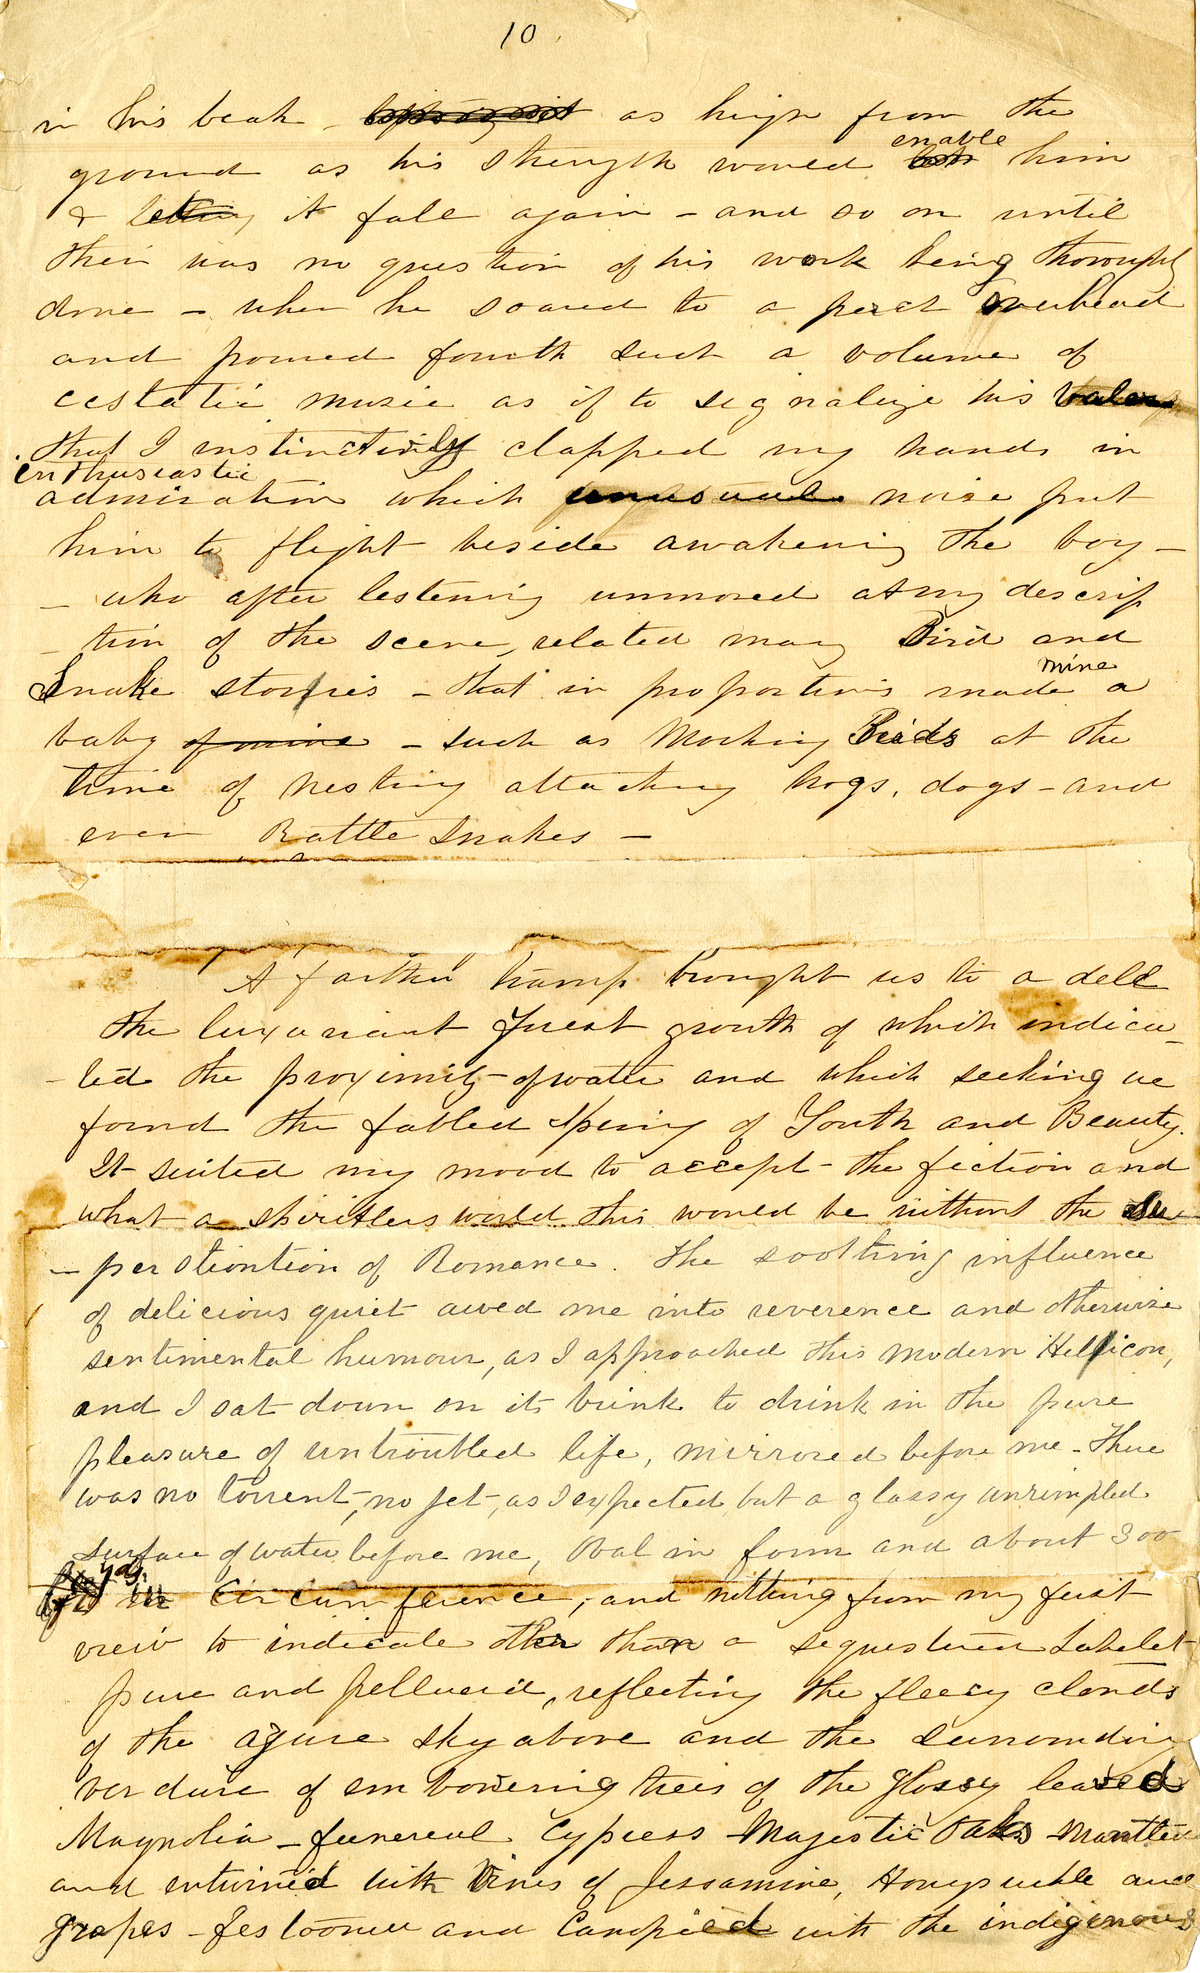 10
in his beak as high from the
enable
ground as his strength would him
& letting it fall again - and so on until
their was no question of his work being thoroughly
done - when he soared to a perct overhead
and poured fourth such a volume of
ecstatic music as if to signalize his valor
that I instinctively clapped my hands in
enthusiastic
admiration which unusual noise put
him to flight beside awakening the boy -
- who after listening unmoved at my descrip
- tion of the scene, related many Bird and
mine
Snake stories - that in proportions made a
baby of mine - such as Mocking Birds at the
time of nesting attacking hogs, dogs - and
even Rattle Snakes -
A farther tramp brought us to a dell
the luxuriant forest growth of which indica_
- ted the proximity of water and which seeking we
found the fabled Spring of Youth and Beauty.
It suited my mood to accept - the fiction and
what a spiritless world this would be without the su
- perstiontion of Romance. The soothing influence
of delicious quiet awed me into reverence and otherwise
sentimental humour, as I approached this modern Hellicon,
and I sat down on its brink to drink in the pure
pleasure of untroubled life, mirrored before me - There
was no torrent, no jet, as I expected, but a glassy unrimpled
surface of water before me, Oval in form and about 300
yds. in Circumference, and nothing from my first
view to indicate other than a sequestered Lakelet
pure and pellucid, reflecting the fleecy clouds
of the azure sky above and the surrounding
verdure of embowering trees of the glossy leaved
Magnolia - funereal Cypress - Majestic Oaks - Mantled
and entwined with Vines of Jessamine, Honeysuckle and
grapes - festooned and Canopied with the indigenous